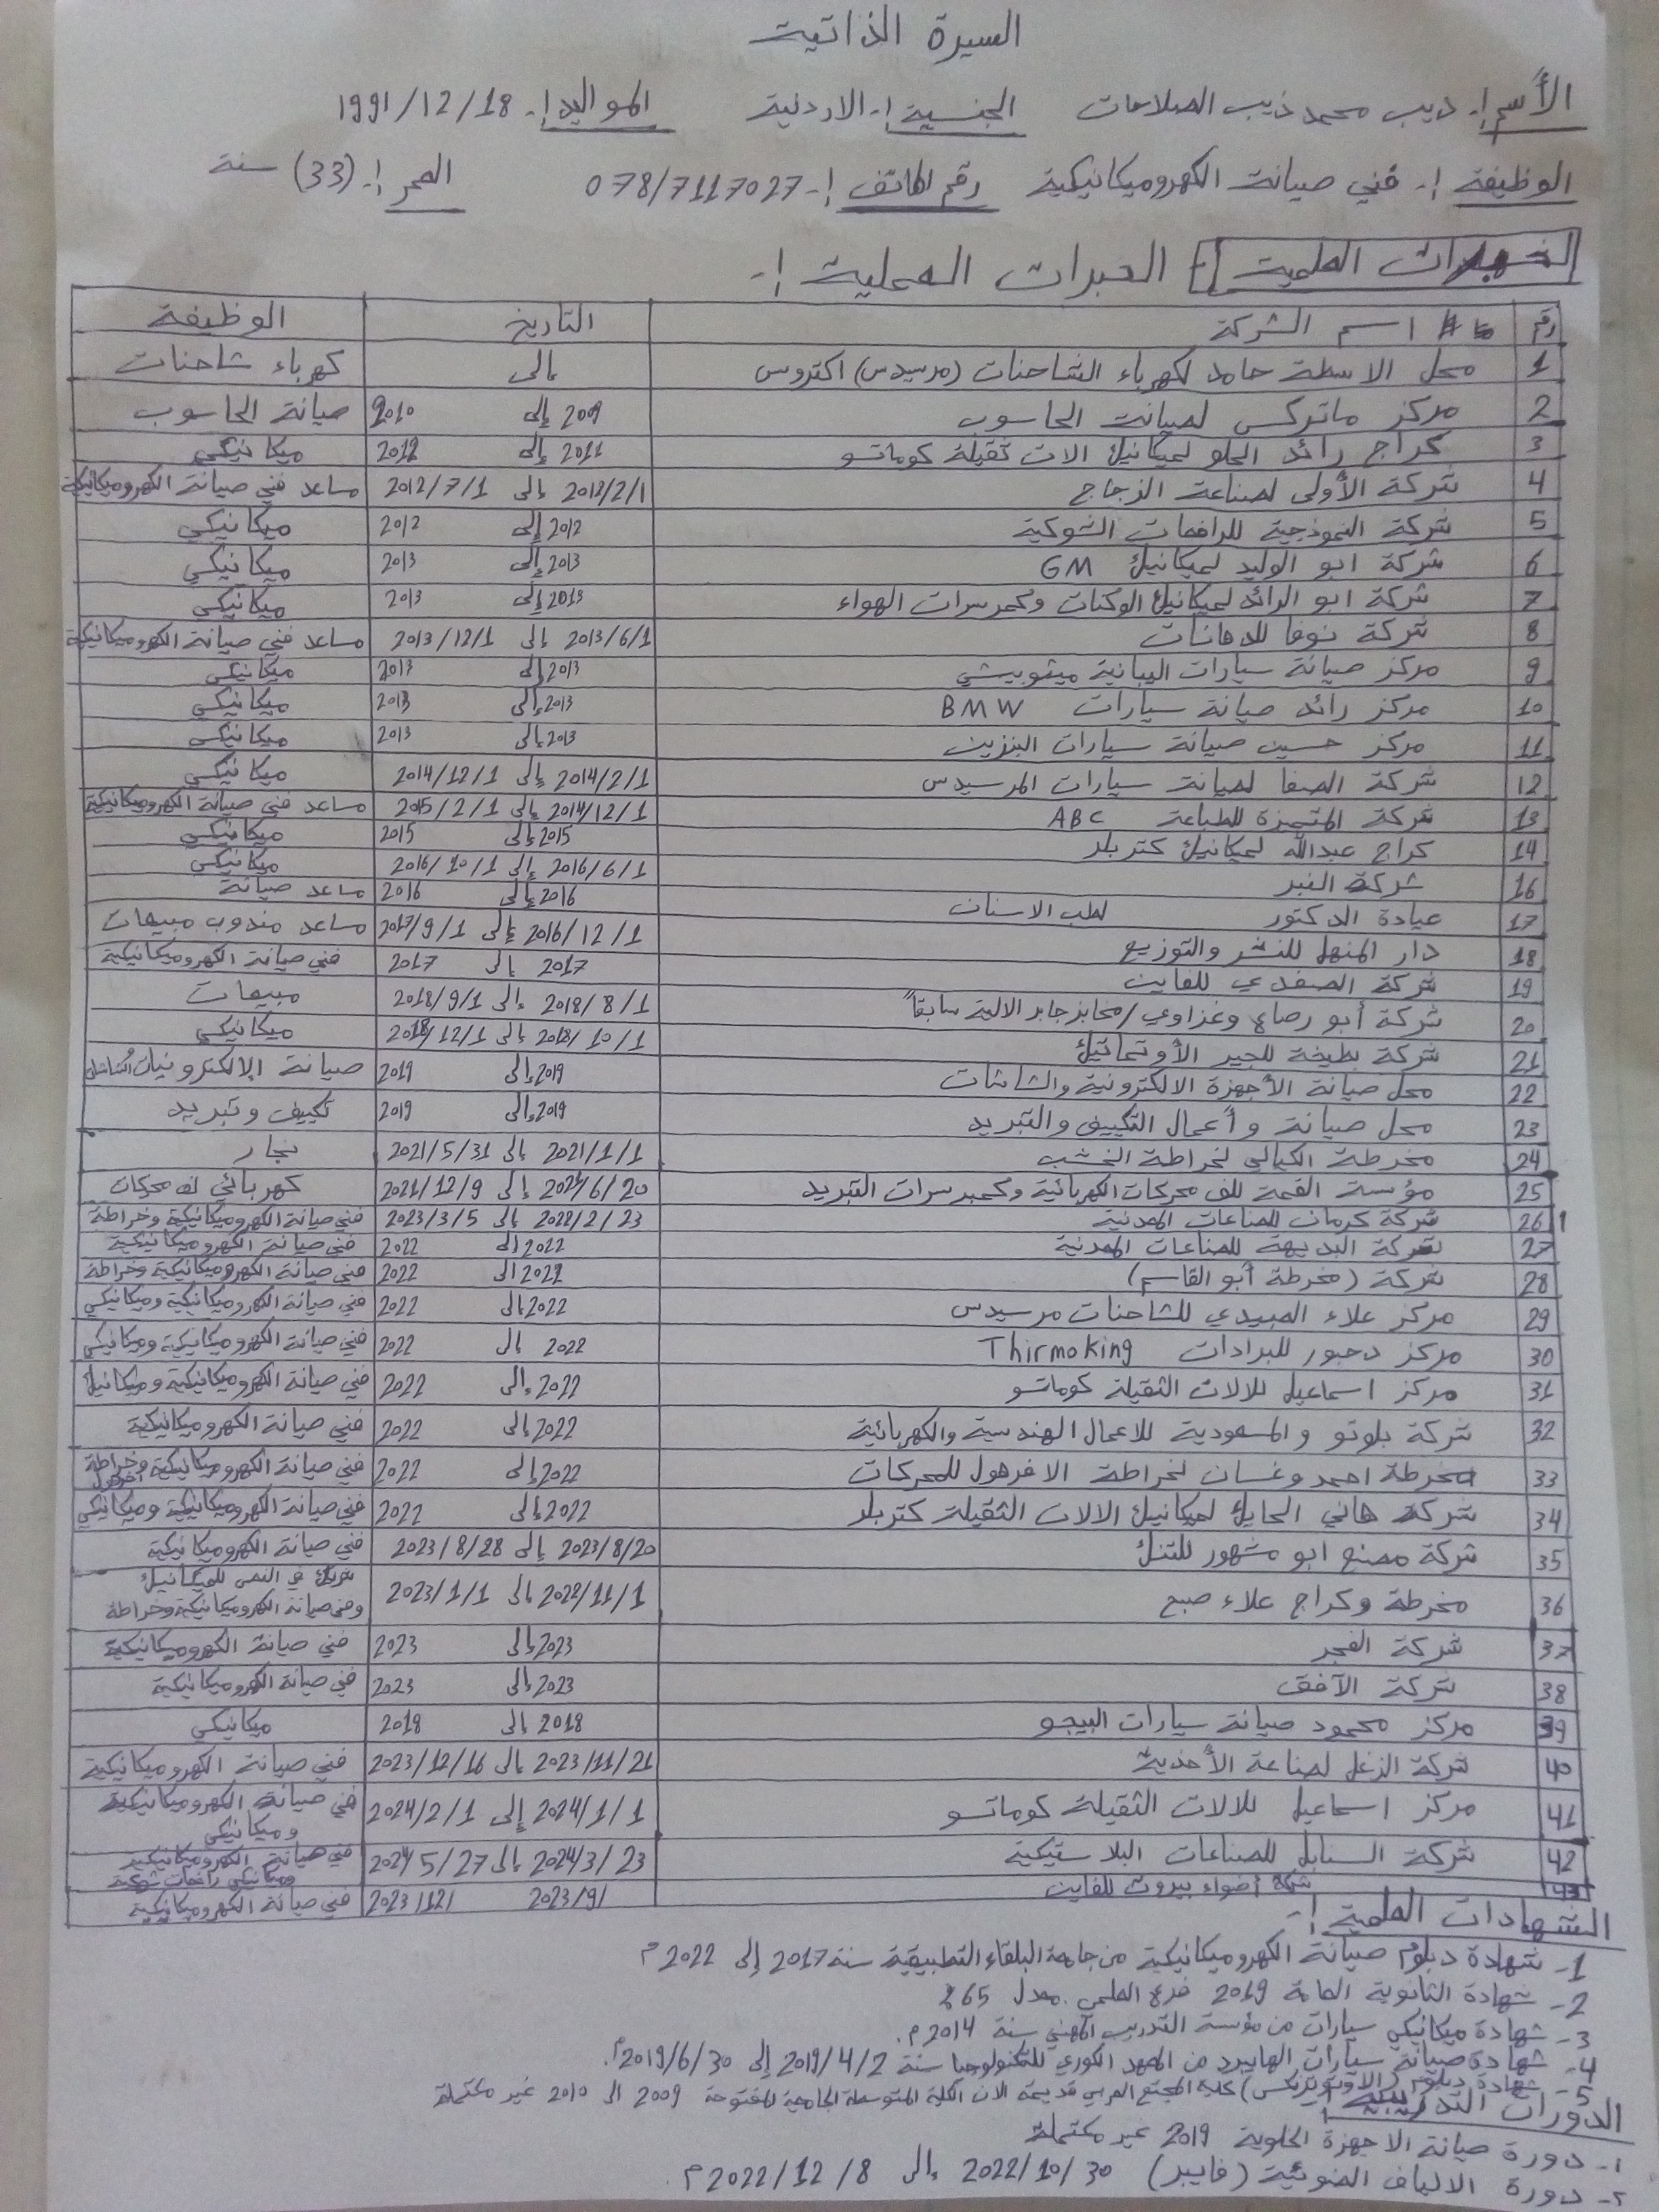 السيرة الذاتية
الأسم :- ذيب محمد ذيب الصلاحات الجنسية :- الاردنية المواليد :- 1991/12/18
الوظيفة :- فني صيانة الكهروميكانيكية رقم الهاتف :- 078/7117027 العمر :- (33) سنة
العلمية الخبرات العملية :-
رقم اسم الشركة التاريخ الوظيفة
1 محل الاسطة حامد لكهرباء الشاحنات (مرسيدس) اكتروس إلى كهرباء شاحنات
2 مركز ماتركس لصيانة الحاسوب 2009 إلى 2010 صيانة الحاسوب
3 كراج رائد الحلو لميكانيك الات ثقيلة كوماتسو 2011 إلى 2012 ميكانيكي
4 شركة الأولى لصناعة الزجاج 2012/2/1 إلى 2012/7/1 مساعد فني صيانة الكهروميكانيكية
5 شركة النموذجية للرافعات الشوكية 2012 إلى 2012 ميكانيكي
6 شركة ابو الوليد لميكانيك GM 2013 إلى 2013 ميكانيكي
7 شركة ابو الرائد لميكانيك الوكنات وكمبرسرات الهواء 2013 إلى 2013 ميكانيكي
8 شركة نوفا للدهانات 2013/6/1 إلى 2013/12/1 مساعد فني صيانة الكهروميكانيكية
9 مركز صيانة سيارات اليبانية ميتوبيشي 2013 إلى 2013 ميكانيكي
10 مركز رائد صيانة سيارات BMW 2013 إلى 2013 ميكانيكي
11 مركز حسين صيانة سيارات البنزين 2013 إلى 2013 ميكانيكي
12 شركة الصفا لصيانة سيارات المرسيدس 2014/2/1 إلى 2014/12/1 ميكانيكي
13 شركة المتميزة للطباعة ABC 2014/12/1 إلى 2015/2/1 مساعد فني صيانة الكهروميكانيكية
14 كراج عبدالله لميكانيك كتربلر 2015 إلى 2015 ميكانيكي
16 شركة 2016/6/1 إلى 2016/10/1 ميكانيكي
17 عيادة الدكتور لطب الاسنان 2016 إلى 2016 مساعد صيانة
18 دار المنهل للنشر والتوزيع 2016/12/1 إلى 2017/9/1 مساعد مندوب مبيعات
19 شركة الصفدي للفاين 2017 إلى 2017 فني صيانة الكهروميكانيكية
20 شركة أبو رصاع وغزاوي/مخابز جابر الالية سابقاً 2018/8/1 إلى 2018/9/1 مبيعات
21 شركة بطيخة للجير الأوتماتيك 2018/10/1 إلى 2018/12/1 ميكانيكي
22 محل صيانة الأجهزة الالكترونية والشاشات 2019 إلى 2019 صيانة الإلكترونيات
23 محل صيانة و أعمال التكييف والتبريد 2019 إلى 2019 تكييف وتبريد
24 مخرطة الكيالي لخراطة الخشب 2021/1/1 إلى 2021/5/31 نجار
25 مؤسسة القمة للف محركات الكهربائية وكمبرسرات التبريد 2021/6/20 إلى 2021/12/9 كهربائي لف محركات
26 شركة كرمان للصناعات المعدنية 2022/2/23 إلى 2023/3/5 فني صيانة الكهروميكانيكية وخراطة
27 شركة البديهة للصناعات المعدنية 2022 إلى 2022 فني صيانة الكهروميكانيكية
28 شركة (مخرطة أبو القاسم) 2022 إلى 2022 فني صيانة الكهروميكانيكية وخراطة
29 مركز علاء العبيدي للشاحنات مرسيدس 2022 إلى 2022 فني صيانة الكهروميكانيكية وميكانيكي
30 مركز دحبور للبرادات Thirmoking 2022 إلى 2022 فني صيانة الكهروميكانيكية وميكانيكي
31 مركز اسماعيل للالات الثقيلة كوماتسو 2022 إلى 2022 فني صيانة الكهروميكانيكية وميكانيك
32 شركة بلوتو و السعودية للاعمال الهندسية والكهربائية 2022 إلى 2022 فني صيانة الكهروميكانيكية
33 مخرطة احمد وغسان لخراطة الافرهول للمحركات 2022 إلى 2022 فني صيانة الكهروميكانيكية وخراطة افرهول
34 شركة هاني الحايك لميكانيك الالات الثقيلة كتربلر 2022 إلى 2022 فني صيانة الكهروميكانيكية وميكانيكي
35 شركة مصنع ابو مشهور للتنك 2023/8/20 إلى 2023/8/28 فني صيانة الكهروميكانيكية
36 مخرطة وكراج علاء صبح 2022/11/1 إلى 2023/1/1 شريك في للميكانيك
وفني صيانة الكهروميكانيكية وخراطة
37 شركة الفجر 2023 إلى 2023 فني صيانة الكهروميكانيكية
38 شركة الآفق 2023 إلى 2023 فني صيانة الكهروميكانيكية
39 مركز محمود صيانة سيارات البيجو 2018 إلى 2018 ميكانيكي
40 شركة الزغل لصناعة الأحذية 2023/11/21 إلى 2023/12/16 فني صيانة الكهروميكانيكية
41 مركز اسماعيل للالات الثقيلة كوماتسو 2024/1/1 إلى 2024/2/1 فني صيانة الكهروميكانيكية
وميكانيكي
42 شركة السنابل للصناعات البلاستيكية 2024/3/23 إلى 2024/5/27 فني صيانة الكهروميكانيكية
وميكانيكي رافعات شوكية
43 شركة أضواء بيروت للفاين 2023/9/ 2023/12/ فني صيانة الكهروميكانيكية
الشهادات العلمية :-
1- شهادة دبلوم صيانة الكهروميكانيكية من جامعة البلقاء التطبيقية سنة 2017 إلى 2022م
2- شهادة الثانوية العامة 2019 فرع العلمي. معدل 65%
3- شهادة ميكانيكي سيارات من مؤسسة التدريب المهني سنة 2014م.
4- شهادة صيانة سيارات الهايبرد من المعهد الكوري للتكنولوجيا سنة 2019/4/2 إلى 2019/6/30م.
5- شهادة دبلوم (الاوتوترنكس) كلية المجتمع العربي قديمة الان الكلية المتوسطة الجامعية المفتوحة 2009 الى 2010 غير مكتملة
الدورات التدريبية :
1- دورة صيانة الاجهزة الخلوية 2019 غير مكتملة
2- دورة الالياف الضوئية (فايبر) 2022/10/30 إلى 2022/12/8م.